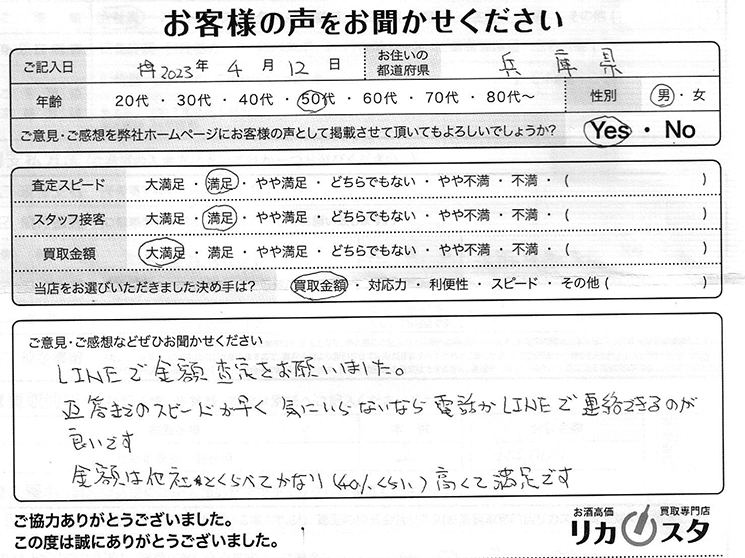 お客様の声をお聞かせください
ご記入日 2023年 4月 12日 お住いの都道府県 兵庫県
年齢 20代・30代・40代・50代・60代・70代・80代〜 性別 男・女
ご意見・ご感想を弊社ホームページにお客様の声として掲載させて頂いてもよろしいでしょうか? Yes・No
査定スピード 大満足・満足・やや満足・どちらでもない・やや不満・不満・( )
スタッフ接客 大満足・満足・やや満足・どちらでもない・やや不満・不満・( )
買取金額 大満足・満足・やや満足・どちらでもない・やや不満・不満・( )
当店をお選びいただきました決め手は? 買取金額・対応力・利便性・スピード・その他( )
ご意見・ご感想などぜひお聞かせください
LINEで金額査定をお願いました。
返答までのスピードが早く 気にいらないなら電話かLINEで連絡できるのが
良いです
金額は他社とくらべてかなり(40%くらい)高くて満足です
ご協力ありがとうございました。
この度は誠にありがとうございました。
お酒高価 買取専門店
リカスタ